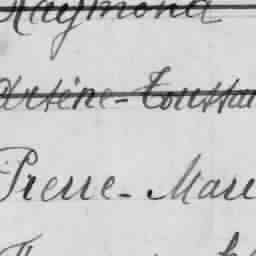 Raymond
Arsène-Toussai
Pierre-Mari